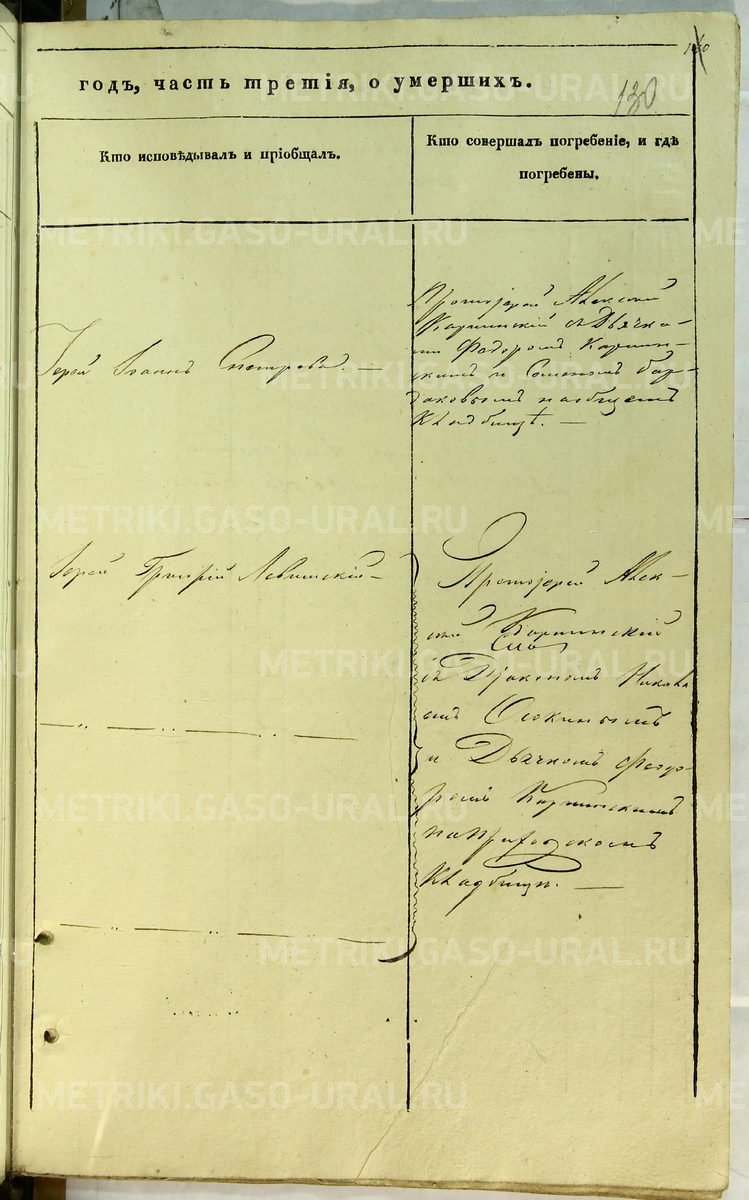 годъ, часть третія, о умершихъ.
130
Кто исповѣдывалъ и пріобщалъ.
Кто совершалъ погребеніе, и гдѣ
погребены.
Іерей Іоаннъ
Протоіерей Алексѣй
Карпинскій съ Дьячка-
ми Федоромъ Карпин-
скимъ и Семеномъ Бар-
даковымъ на общемъ
кладбищѣ.
Іерей Григорій Левитскій
Протоіерей Алек-
сѣй Карпинскій
съ Діакономъ Никола
емъ
и Дьячкомъ Федо-
ромъ Карпинскимъ
на приходскомъ
кладбищѣ.
METRIKI.GASO-URAL.RU